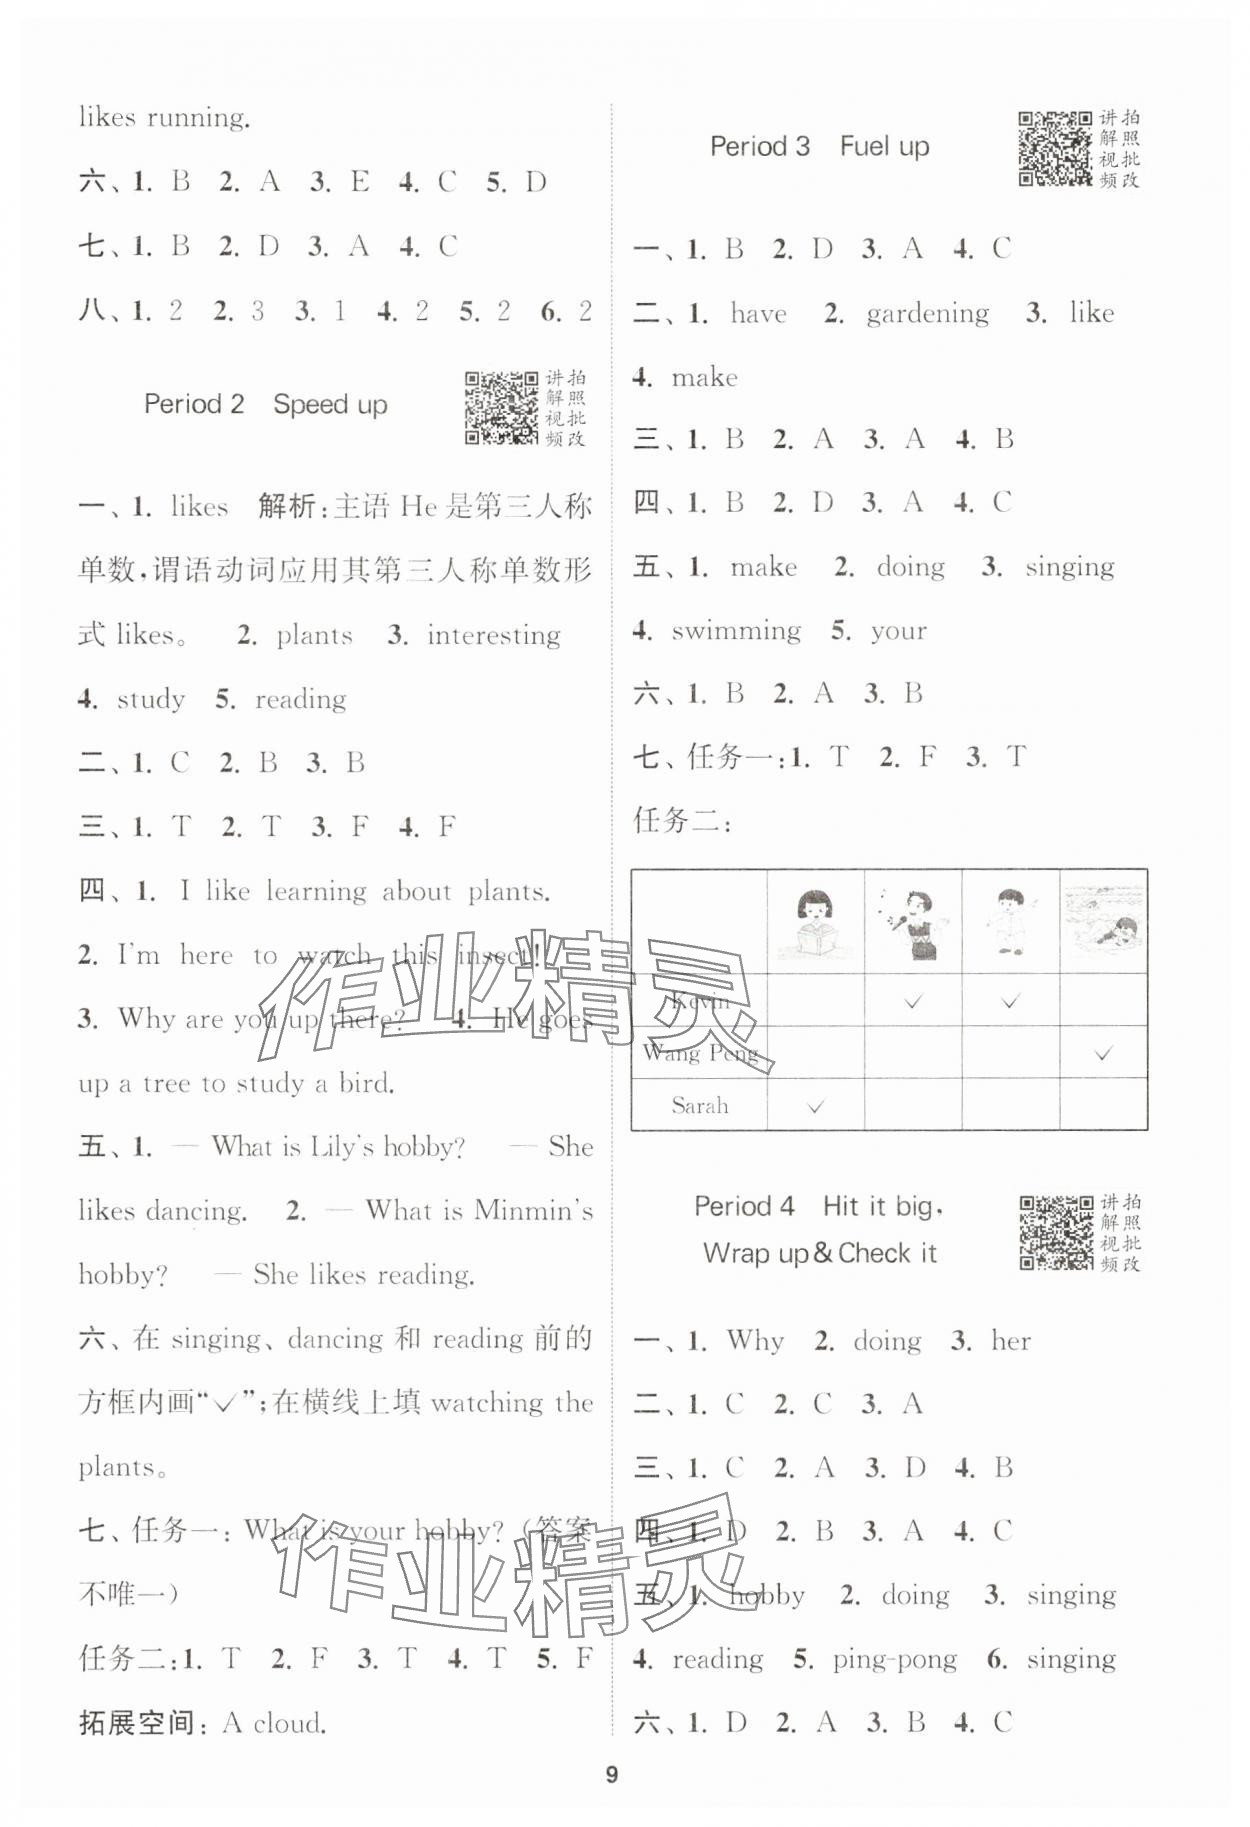 likes running.
六、1. B 2. A 3. E 4. C 5. D
七、1. B 2. D 3. A 4. C
八、1. 2 2. 3 3. 1 4. 2 5. 2 6. 2
Period 2 Speed up
讲拍
解照
视批
频改
一、1. likes 解析:主语 He 是第三人称
单数,谓语动词应用其第三人称单数形
式 likes。 2. plants 3. interesting
4. study 5. reading
二、1. C 2. B 3. B
三、1. T 2. T 3. F 4. F
四、1. I like learning about plants.
2. I'm here to watch this insect!
3. Why are you up there? 4. He goes
up a tree to study a bird.
五、1. — What is Lily's hobby? — She
likes dancing. 2. — What is Minmin's
hobby? — She likes reading.
六、在 singing、dancing 和 reading 前的
方框内画“✓”;在横线上填 watching the
plants。
七、任务一: What is your hobby? (答案
不唯一)
任务二:1. T 2. F 3. T 4. T 5. F
拓展空间: A cloud.
Period 3 Fuel up
讲拍
解照
视批
频改
一、1. B 2. D 3. A 4. C
二、1. have 2. gardening 3. like
4. make
三、1. B 2. A 3. A 4. B
四、1. B 2. D 3. A 4. C
五、1. make 2. doing 3. singing
4. swimming 5. your
六、1. B 2. A 3. B
七、任务一:1. T 2. F 3. T
任务二:
Kevin ✓ ✓
Wang Peng ✓
Sarah ✓
Period 4 Hit it big,
Wrap up & Check it
讲拍
解照
视批
频改
一、1. Why 2. doing 3. her
二、1. C 2. C 3. A
三、1. C 2. A 3. D 4. B
四、1. D 2. B 3. A 4. C
五、1. hobby 2. doing 3. singing
4. reading 5. ping-pong 6. singing
六、1. D 2. A 3. B 4. C
9
作业精灵
作业精灵